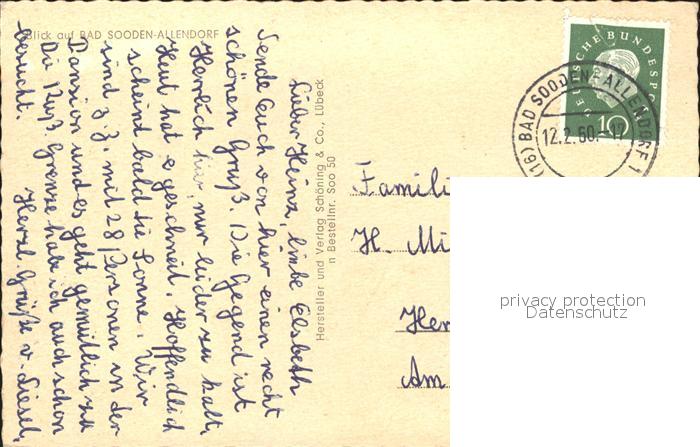 Blick auf BAD SOODEN-ALLENDORF
Lieber Heinz, liebe Elsbeth
Sende Euch von hier einen recht
schönen Gruß. Die Gegend ist
Herrlich hier, nur leider zu kalt,
Heut hat es geschneit. Hoffendlich
scheint bald die Sonne. Wir
sind z. Z. mit 28 Personen in der
Pansion und es geht gemütlich zu
Die Grenze habe ich auch schon
besucht.
Herzl. Grüße v. Liesel.
Hersteller und Verlag Schöning & Co., Lübeck
n Bestellnr. Soo 50
DEUTSCHE BUNDESP
10
(16) BAD SOODEN-ALLENDORF 1
12.2.60.-17
Famili
H. Mi
Her
Am
privacy protection
Datenschutz